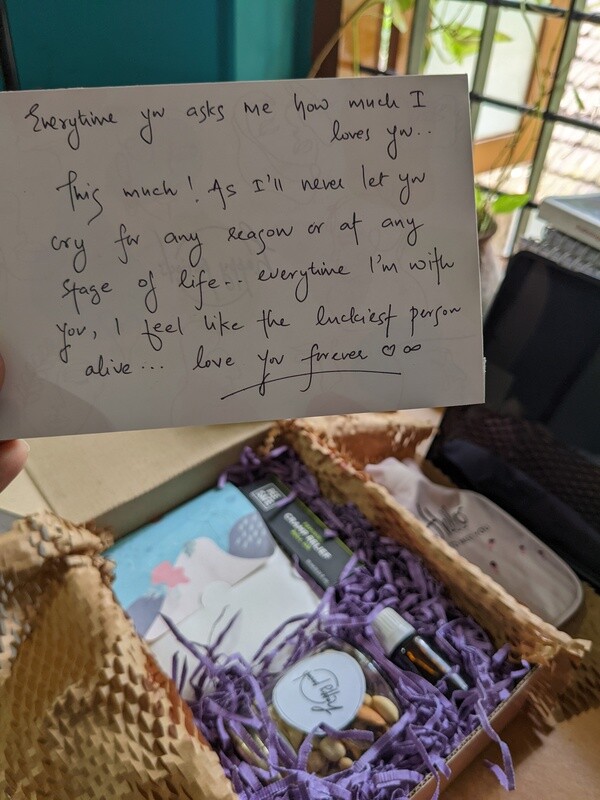 Everytime you asks me how much I
loves you..
This much! As I'll never let you
cry for any reason or at any
stage of life.. everytime I'm with
you, I feel like the luckiest person
alive... love you forever ♡ ∞
CRAMP RELIEF